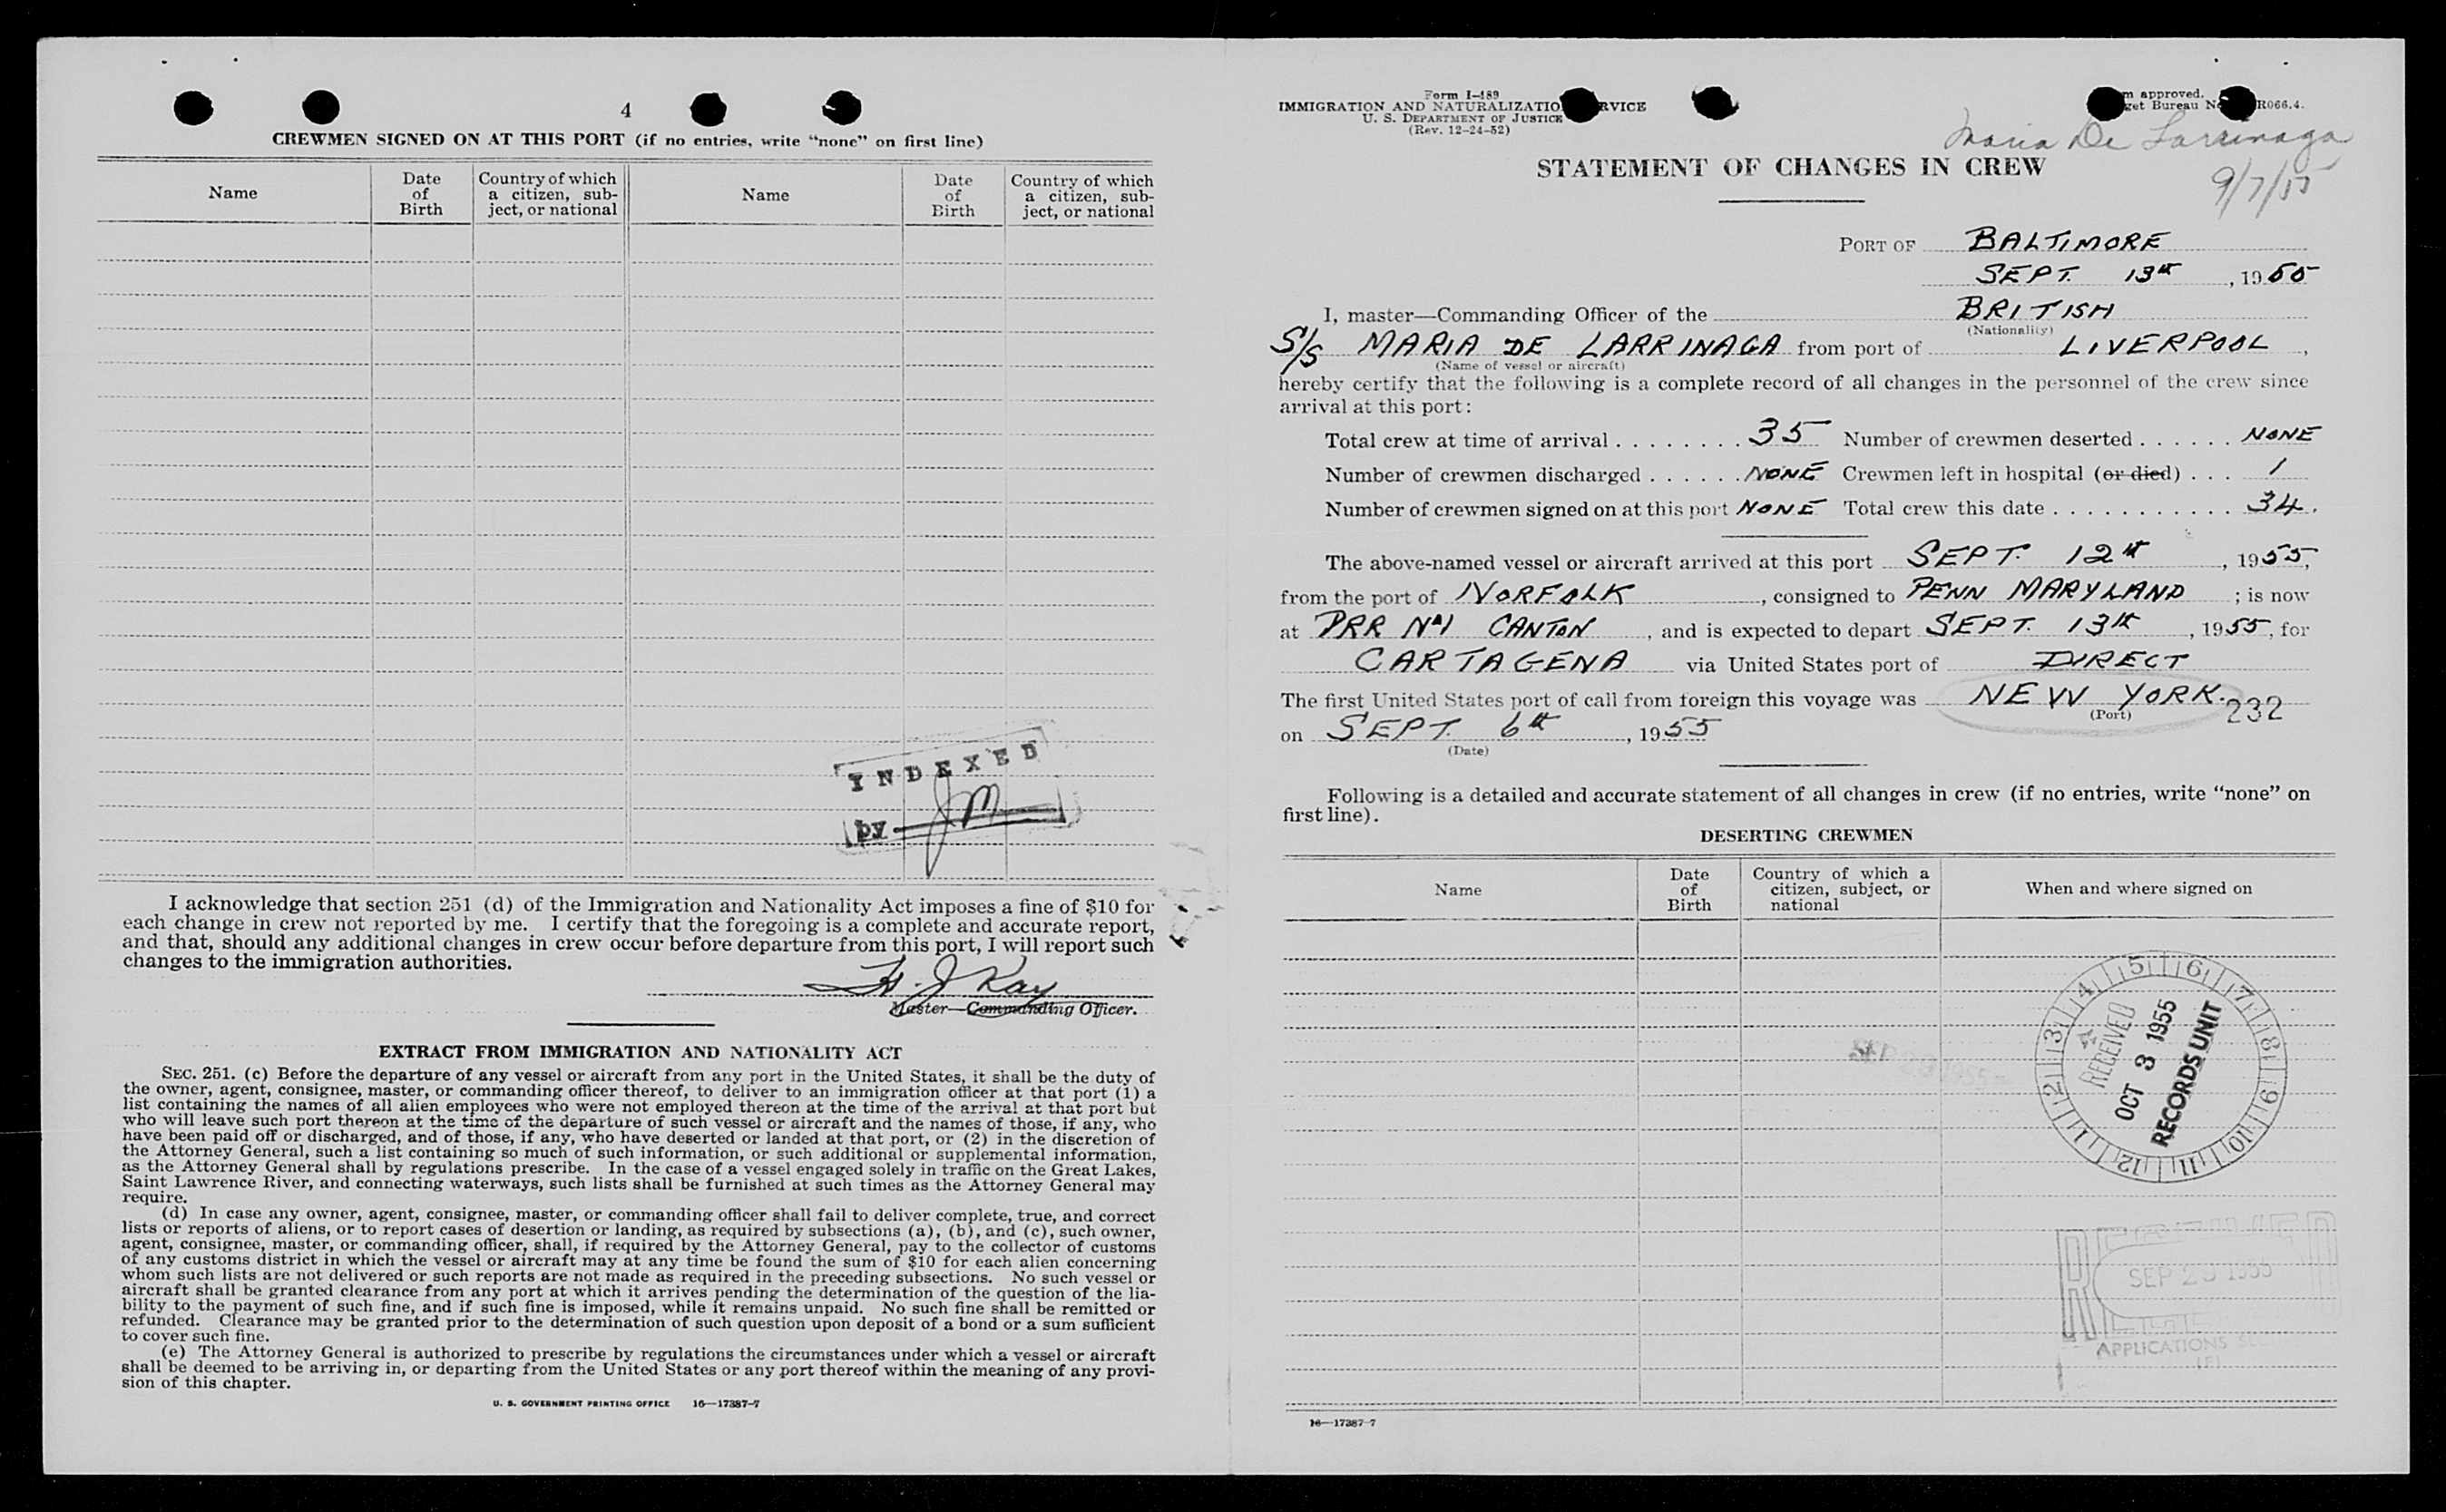 4
CREWMEN SIGNED ON AT THIS PORT (if no entries, write "none" on first line)
Name
Date of Birth
Country of which a citizen, sub-ject, or national
Name
Date of Birth
Country of which a citizen, sub-ject, or national
INDEXED
by JM
I acknowledge that section 251 (d) of the Immigration and Nationality Act imposes a fine of $10 for
each change in crew not reported by me. I certify that the foregoing is a complete and accurate report,
and that, should any additional changes in crew occur before departure from this port, I will report such
changes to the immigration authorities.
H. J Kay
Master—Commanding Officer.
EXTRACT FROM IMMIGRATION AND NATIONALITY ACT
SEC. 251. (c) Before the departure of any vessel or aircraft from any port in the United States, it shall be the duty of
the owner, agent, consignee, master, or commanding officer thereof, to deliver to an immigration officer at that port (1) a
list containing the names of all alien employees who were not employed thereon at the time of the arrival at that port but
who will leave such port thereon at the time of the departure of such vessel or aircraft and the names of those, if any, who
have been paid off or discharged, and of those, if any, who have deserted or landed at that port, or (2) in the discretion of
the Attorney General, such a list containing so much of such information, or such additional or supplemental information,
as the Attorney General shall by regulations prescribe. In the case of a vessel engaged solely in traffic on the Great Lakes,
Saint Lawrence River, and connecting waterways, such lists shall be furnished at such times as the Attorney General may
require.
(d) In case any owner, agent, consignee, master, or commanding officer shall fail to deliver complete, true, and correct
lists or reports of aliens, or to report cases of desertion or landing, as required by subsections (a), (b), and (c), such owner,
agent, consignee, master, or commanding officer, shall, if required by the Attorney General, pay to the collector of customs
of any customs district in which the vessel or aircraft may at any time be found the sum of $10 for each alien concerning
whom such lists are not delivered or such reports are not made as required in the preceding subsections. No such vessel or
aircraft shall be granted clearance from any port at which it arrives pending the determination of the question of the lia-
bility to the payment of such fine, and if such fine is imposed, while it remains unpaid. No such fine shall be remitted or
refunded. Clearance may be granted prior to the determination of such question upon deposit of a bond or a sum sufficient
to cover such fine.
(e) The Attorney General is authorized to prescribe by regulations the circumstances under which a vessel or aircraft
shall be deemed to be arriving in, or departing from the United States or any port thereof within the meaning of any provi-
sion of this chapter.
U. S. GOVERNMENT PRINTING OFFICE 16—17387-7
Form I-489
IMMIGRATION AND NATURALIZATIO RVICE
U. S. DEPARTMENT OF JUSTICE
(Rev. 12-24-52)
m approved.
get Bureau N R066.4.
Maria De Larrinaga
9/7/55
STATEMENT OF CHANGES IN CREW
PORT OF BALTIMORE
SEPT. 13th, 1955
I, master—Commanding Officer of the BRITISH
(Nationality)
S/S MARIA DE LARRINAGA from port of LIVERPOOL,
(Name of vessel or aircraft)
hereby certify that the following is a complete record of all changes in the personnel of the crew since
arrival at this port:
Total crew at time of arrival . . . . . . . . 35 Number of crewmen deserted . . . . . . NONE
Number of crewmen discharged . . . . . . NONE Crewmen left in hospital (or died) . . . 1
Number of crewmen signed on at this port NONE Total crew this date . . . . . . . . . . . 34.
The above-named vessel or aircraft arrived at this port SEPT. 12th, 1955,
from the port of NORFOLK, consigned to PENN MARYLAND; is now
at PRR No1 CANTON, and is expected to depart SEPT. 13th, 1955, for
CARTAGENA via United States port of DIRECT
The first United States port of call from foreign this voyage was NEW YORK. 232
(Port)
on SEPT. 6th, 1955
(Date)
Following is a detailed and accurate statement of all changes in crew (if no entries, write "none" on
first line).
DESERTING CREWMEN
Name
Date of Birth
Country of which a citizen, subject, or national
When and where signed on
5 6 7 8 9 10 11 12 1 2 3 4
RECEIVED
OCT 3 1955
RECORDS UNIT
SEP 23 1955
RECEIVED
SEP 23 1955
APPLICATIONS
16—17387-7